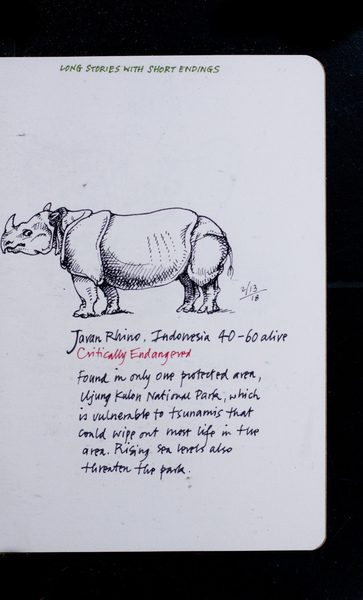 LONG STORIES WITH SHORT ENDINGS
2/13
18
Javan Rhino, Indonesia 40-60 alive
Critically Endangered
Found in only one protected area,
Ujung Kulon National Park, which
is vulnerable to tsunamis that
could wipe out most life in the
area. Rising sea levels also
threaten the park.